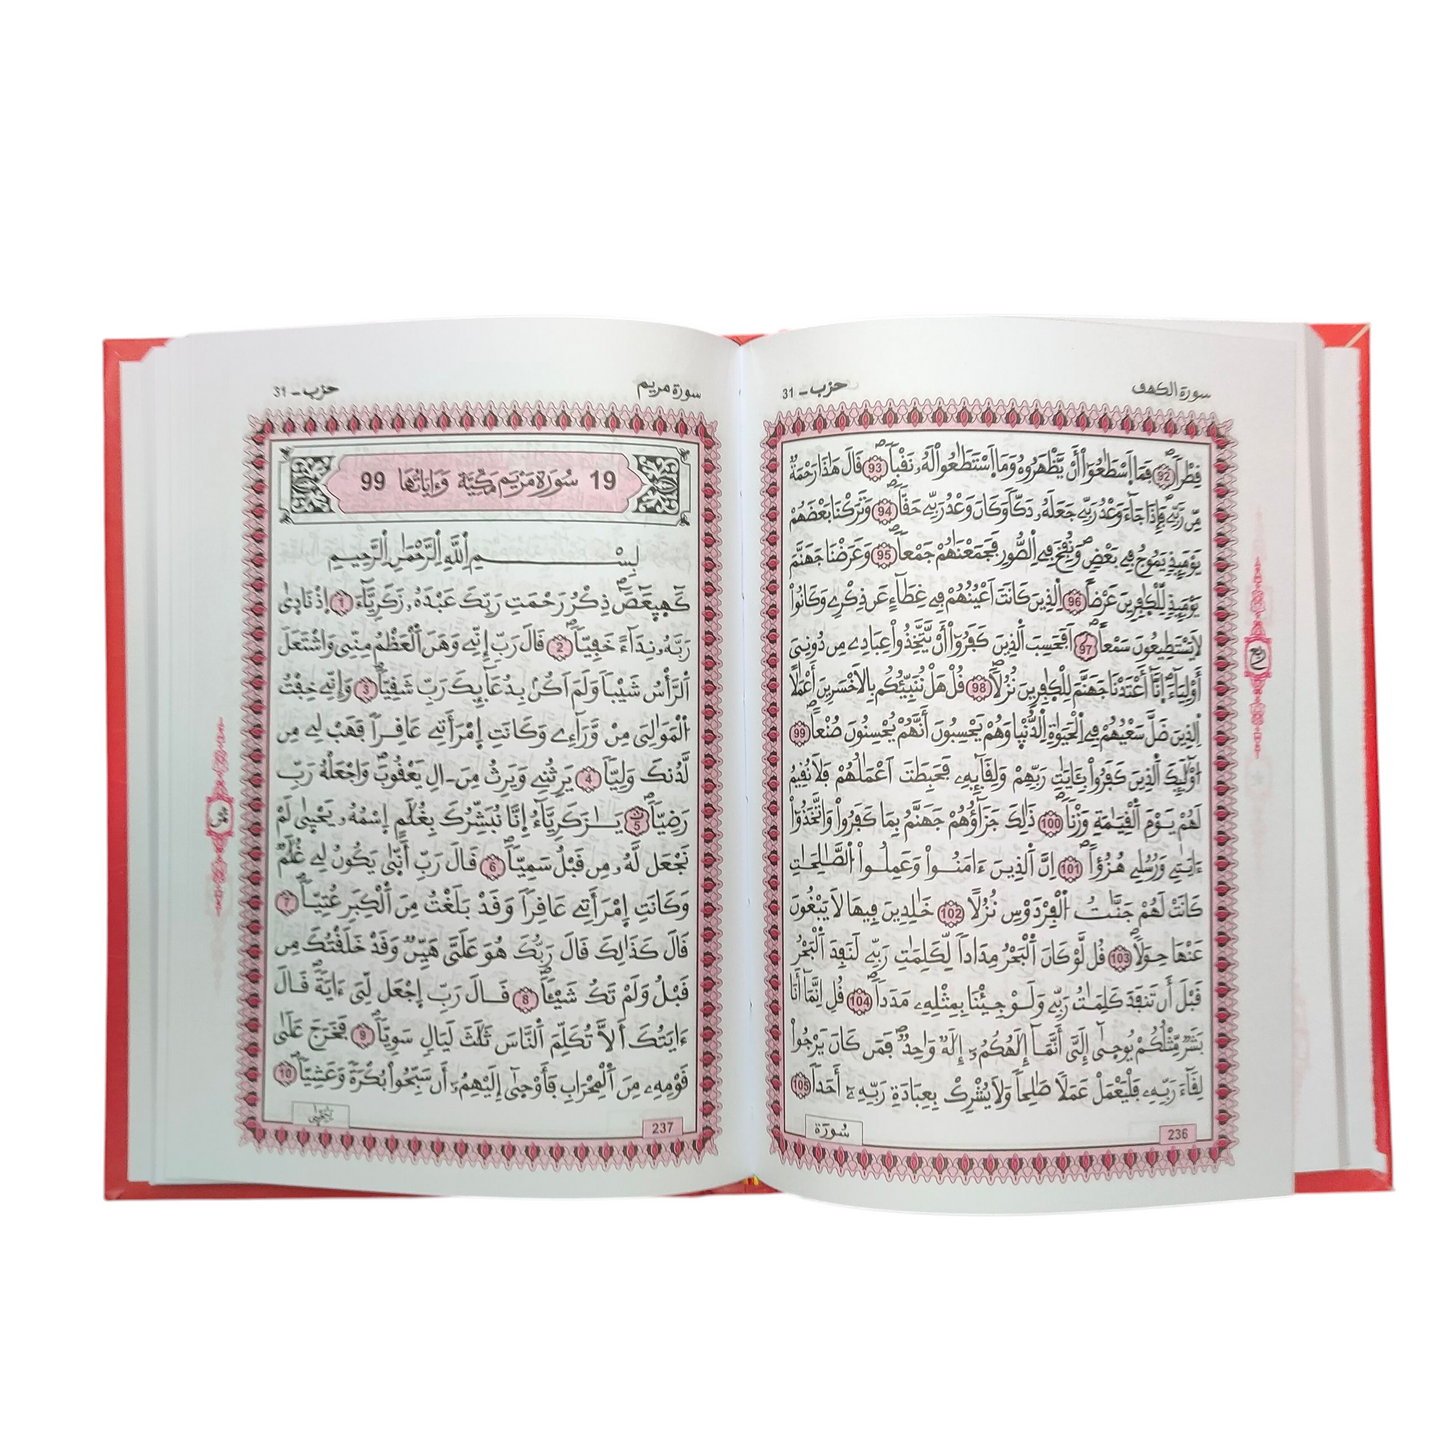 سورة الكهف
حزب - 31
فِطْراً 92 فَمَا اَسْطَٰعُوٓاْ أَنْ يَّظْهَرُوهُ وَمَا اَسْتَطَٰعُواْ لَهُۥ نَقْباً 93 قَالَ هَٰذَا رَحْمَةٞ
مِّن رَّبِّے فَإِذَا جَآءَ وَعْدُ رَبِّے جَعَلَهُۥ دَكّاً وَكَانَ وَعْدُ رَبِّے حَقّاً 94 وَتَرَكْنَا بَعْضَهُمْ
يَوْمَئِذٖ يَمُوجُ فِے بَعْضٖ وَنُفِخَ فِے اِلصُّورِ فَجَمَعْنَٰهُمْ جَمْعاً 95 وَعَرَضْنَا جَهَنَّمَ
يَوْمَئِذٖ لِّلْكَٰفِرِينَ عَرْضاً 96 اِلذِينَ كَانَتَ اَعْيُنُهُمْ فِے غِطَآءٍ عَن ذِكْرِے وَكَانُواْ
لَا يَسْتَطِيعُونَ سَمْعاً 97 اَفَحَسِبَ اَلذِينَ كَفَرُوٓاْ أَنْ يَّتَّخِذُواْ عِبَادِے مِن دُونِيَ
أَوْلِيَآءَ اِنَّآ أَعْتَدْنَا جَهَنَّمَ لِلْكَٰفِرِينَ نُزُلاً 98 قُلْ هَلْ نُنَبِّئُكُم بِالَاخْسَرِينَ أَعْمَٰلاً
اِلذِينَ ضَلَّ سَعْيُهُمْ فِے اِلْحَيَوٰةِ اِلدُّنْيَا وَهُمْ يَحْسِبُونَ أَنَّهُمْ يُحْسِنُونَ صُنْعاً 99
اُوْلَٰٓئِكَ اَلذِينَ كَفَرُواْ بِـَٔايَٰتِ رَبِّهِمْ وَلِقَآئِهِۦ فَحَبِطَتَ اَعْمَٰلُهُمْ فَلَا نُقِيمُ
لَهُمْ يَوْمَ اَلْقِيَٰمَةِ وَزْناً 100 ذَٰلِكَ جَزَآؤُهُمْ جَهَنَّمُ بِمَا كَفَرُواْ وَاتَّخَذُوٓاْ
ءَايَٰتِے وَرُسُلِے هُزُؤاً 101 اِنَّ اَلذِينَ ءَامَنُواْ وَعَمِلُواْ اُلصَّٰلِحَٰتِ
كَانَتْ لَهُمْ جَنَّٰتُ اُلْفِرْدَوْسِ نُزُلاً 102 خَٰلِدِينَ فِيهَا لَا يَبْغُونَ
عَنْهَا حِوَلاً 103 قُل لَّوْ كَانَ اَلْبَحْرُ مِدَاداً لِّكَلِمَٰتِ رَبِّے لَنَفِدَ اَلْبَحْرُ
قَبْلَ أَن تَنفَدَ كَلِمَٰتُ رَبِّے وَلَوْ جِئْنَا بِمِثْلِهِۦ مَدَداً 104 قُلِ اِنَّمَآ أَنَا
بَشَرٞ مِّثْلُكُمْ يُوحَىٰٓ إِلَيَّ أَنَّمَآ إِلَٰهُكُمُۥٓ إِلَٰهٞ وَٰحِدٞ فَمَن كَانَ يَرْجُواْ
لِقَآءَ رَبِّهِۦ فَلْيَعْمَلْ عَمَلاً صَٰلِحاً وَلَا يُشْرِكْ بِعِبَادَةِ رَبِّهِۦٓ أَحَداً 105
سُورَة
236
ربع
سورة مريم
حزب - 31
19 سُورَةُ مَرْيَمَ مَكِّيَّة وَءَايَاتُهَا 99
بِسْمِ اِللَّهِ اِلرَّحْمَٰنِ اِلرَّحِيمِ
كَٓهيعَٓصَٓ ذِكْرُ رَحْمَتِ رَبِّكَ عَبْدَهُۥ زَكَرِيَّآءَ 1 اِذْ نَادَىٰ
رَبَّهُۥ نِدَآءً خَفِيّاً 2 قَالَ رَبِّ إِنِّے وَهَنَ اَلْعَظْمُ مِنِّے وَاشْتَعَلَ
اَلرَّأْسُ شَيْباً وَلَمَ اَكُنۢ بِدُعَآئِكَ رَبِّ شَقِيّاً 3 وَإِنِّے خِفْتُ
اُلْمَوَٰلِيَ مِنْ وَّرَآءِے وَكَانَتِ اِمْرَأَتِے عَاقِراً فَهَبْ لِے مِن
لَّدُنكَ وَلِيّاً 4 يَرِثُنِے وَيَرِثُ مِنَ ـ الِ يَعْقُوبَ وَاجْعَلْهُ رَبِّ
رَضِيّاً 5 يَٰزَكَرِيَّآءُ اِنَّا نُبَشِّرُكَ بِغُلَٰمٍ اِسْمُهُۥ يَحْيَىٰ لَمْ
نَجْعَل لَّهُۥ مِن قَبْلُ سَمِيّاً 6 قَالَ رَبِّ أَنَّىٰ يَكُونُ لِے غُلَٰمٞ
وَكَانَتِ اِمْرَأَتِے عَاقِراً وَقَدْ بَلَغْتُ مِنَ اَلْكِبَرِ عُتِيّاً 7
قَالَ كَذَٰلِكَ قَالَ رَبُّكَ هُوَ عَلَيَّ هَيِّنٞ وَقَدْ خَلَقْتُكَ مِن
قَبْلُ وَلَمْ تَكُ شَيْـٔاً 8 قَالَ رَبِّ اِجْعَل لِّيَ ءَايَةً قَالَ
ءَايَتُكَ أَلَّا تُكَلِّمَ اَلنَّاسَ ثَلَٰثَ لَيَالٖ سَوِيّاً 9 فَخَرَجَ عَلَىٰ
قَوْمِهِۦ مِنَ اَلْمِحْرَابِ فَأَوْحَىٰٓ إِلَيْهِمُۥٓ أَن سَبِّحُواْ بُكْرَةً وَعَشِيّاً 10
237
ثمن